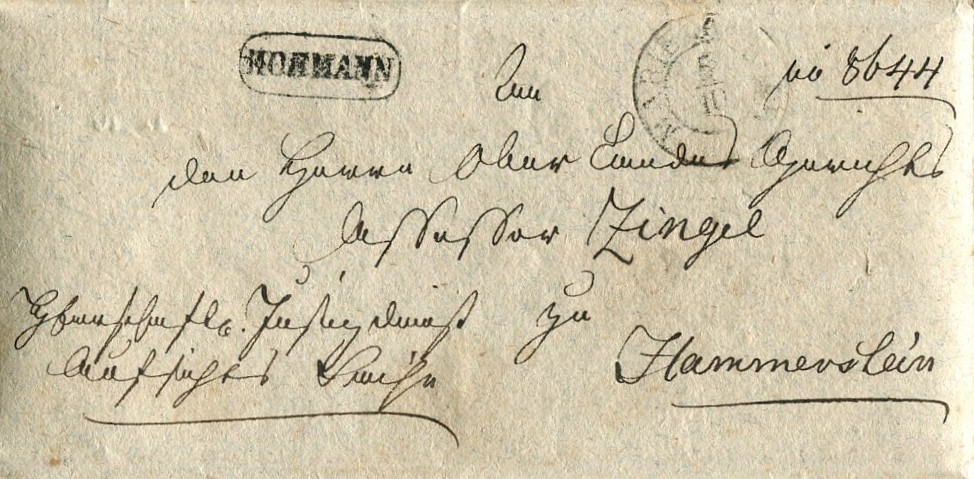 HOHMANN
MARIE
An
No 8644
den Herrn Ober Landes Gerichts
Assessor Zingel
zu
Herrschaftl. Justizdienst
Hammerstein
Aufsichts Sache